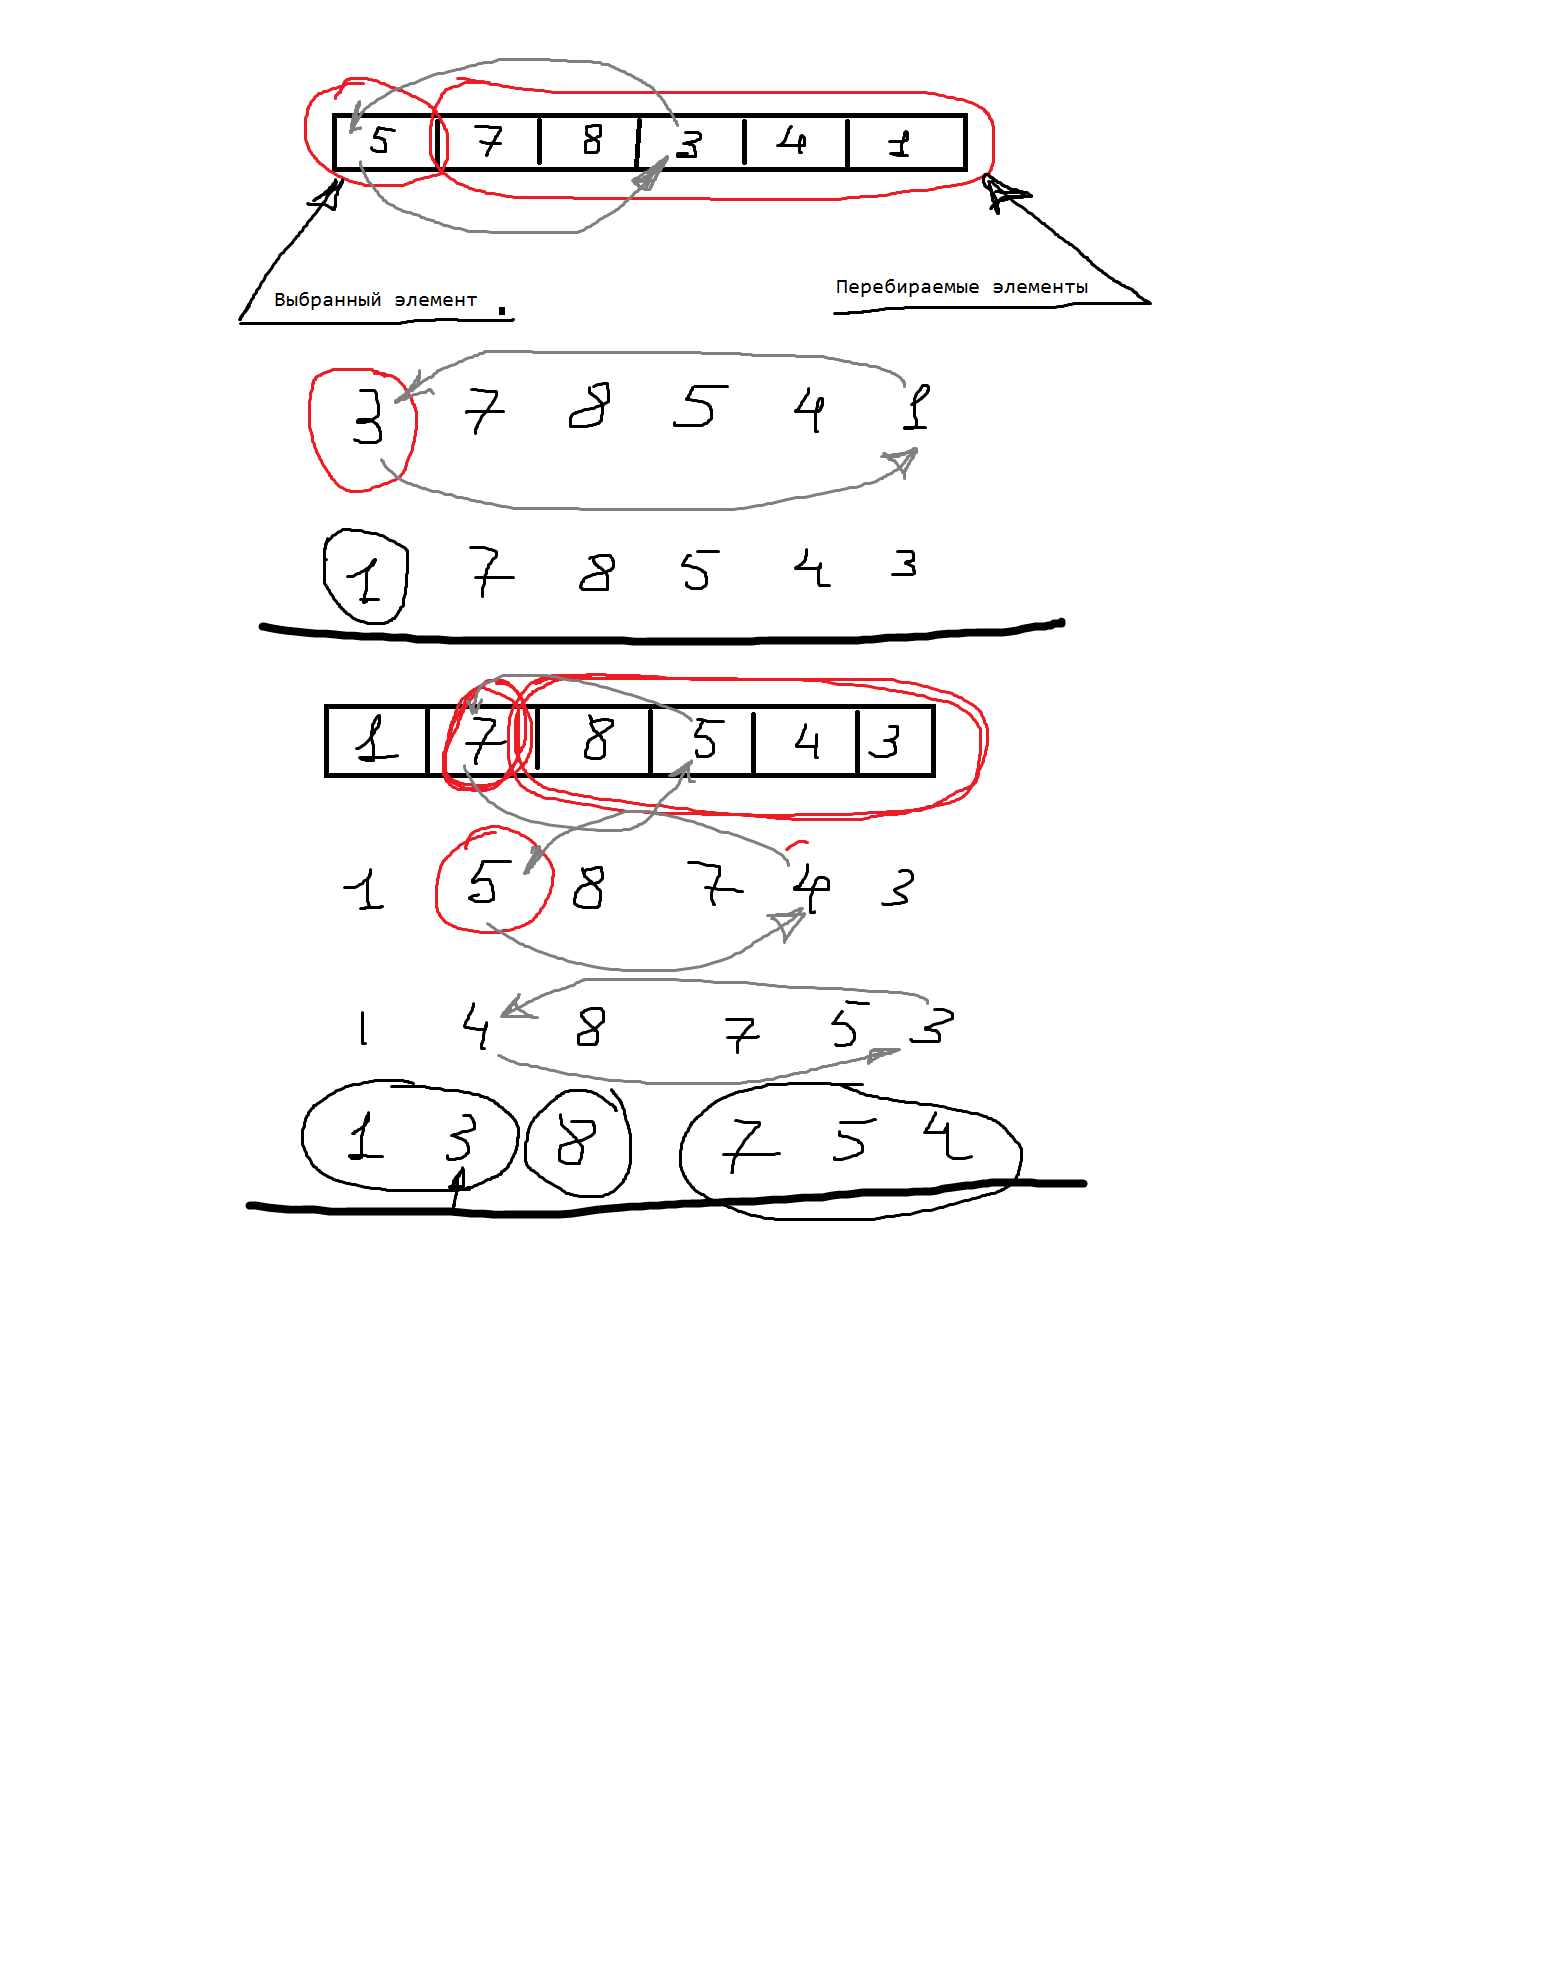 5 7 8 3 4 1
Выбранный элемент
Перебираемые элементы
3 7 8 5 4 1
1 7 8 5 4 3
1 7 8 5 4 3
1 5 8 7 4 3
1 4 8 7 5 3
1 3 8 7 5 4